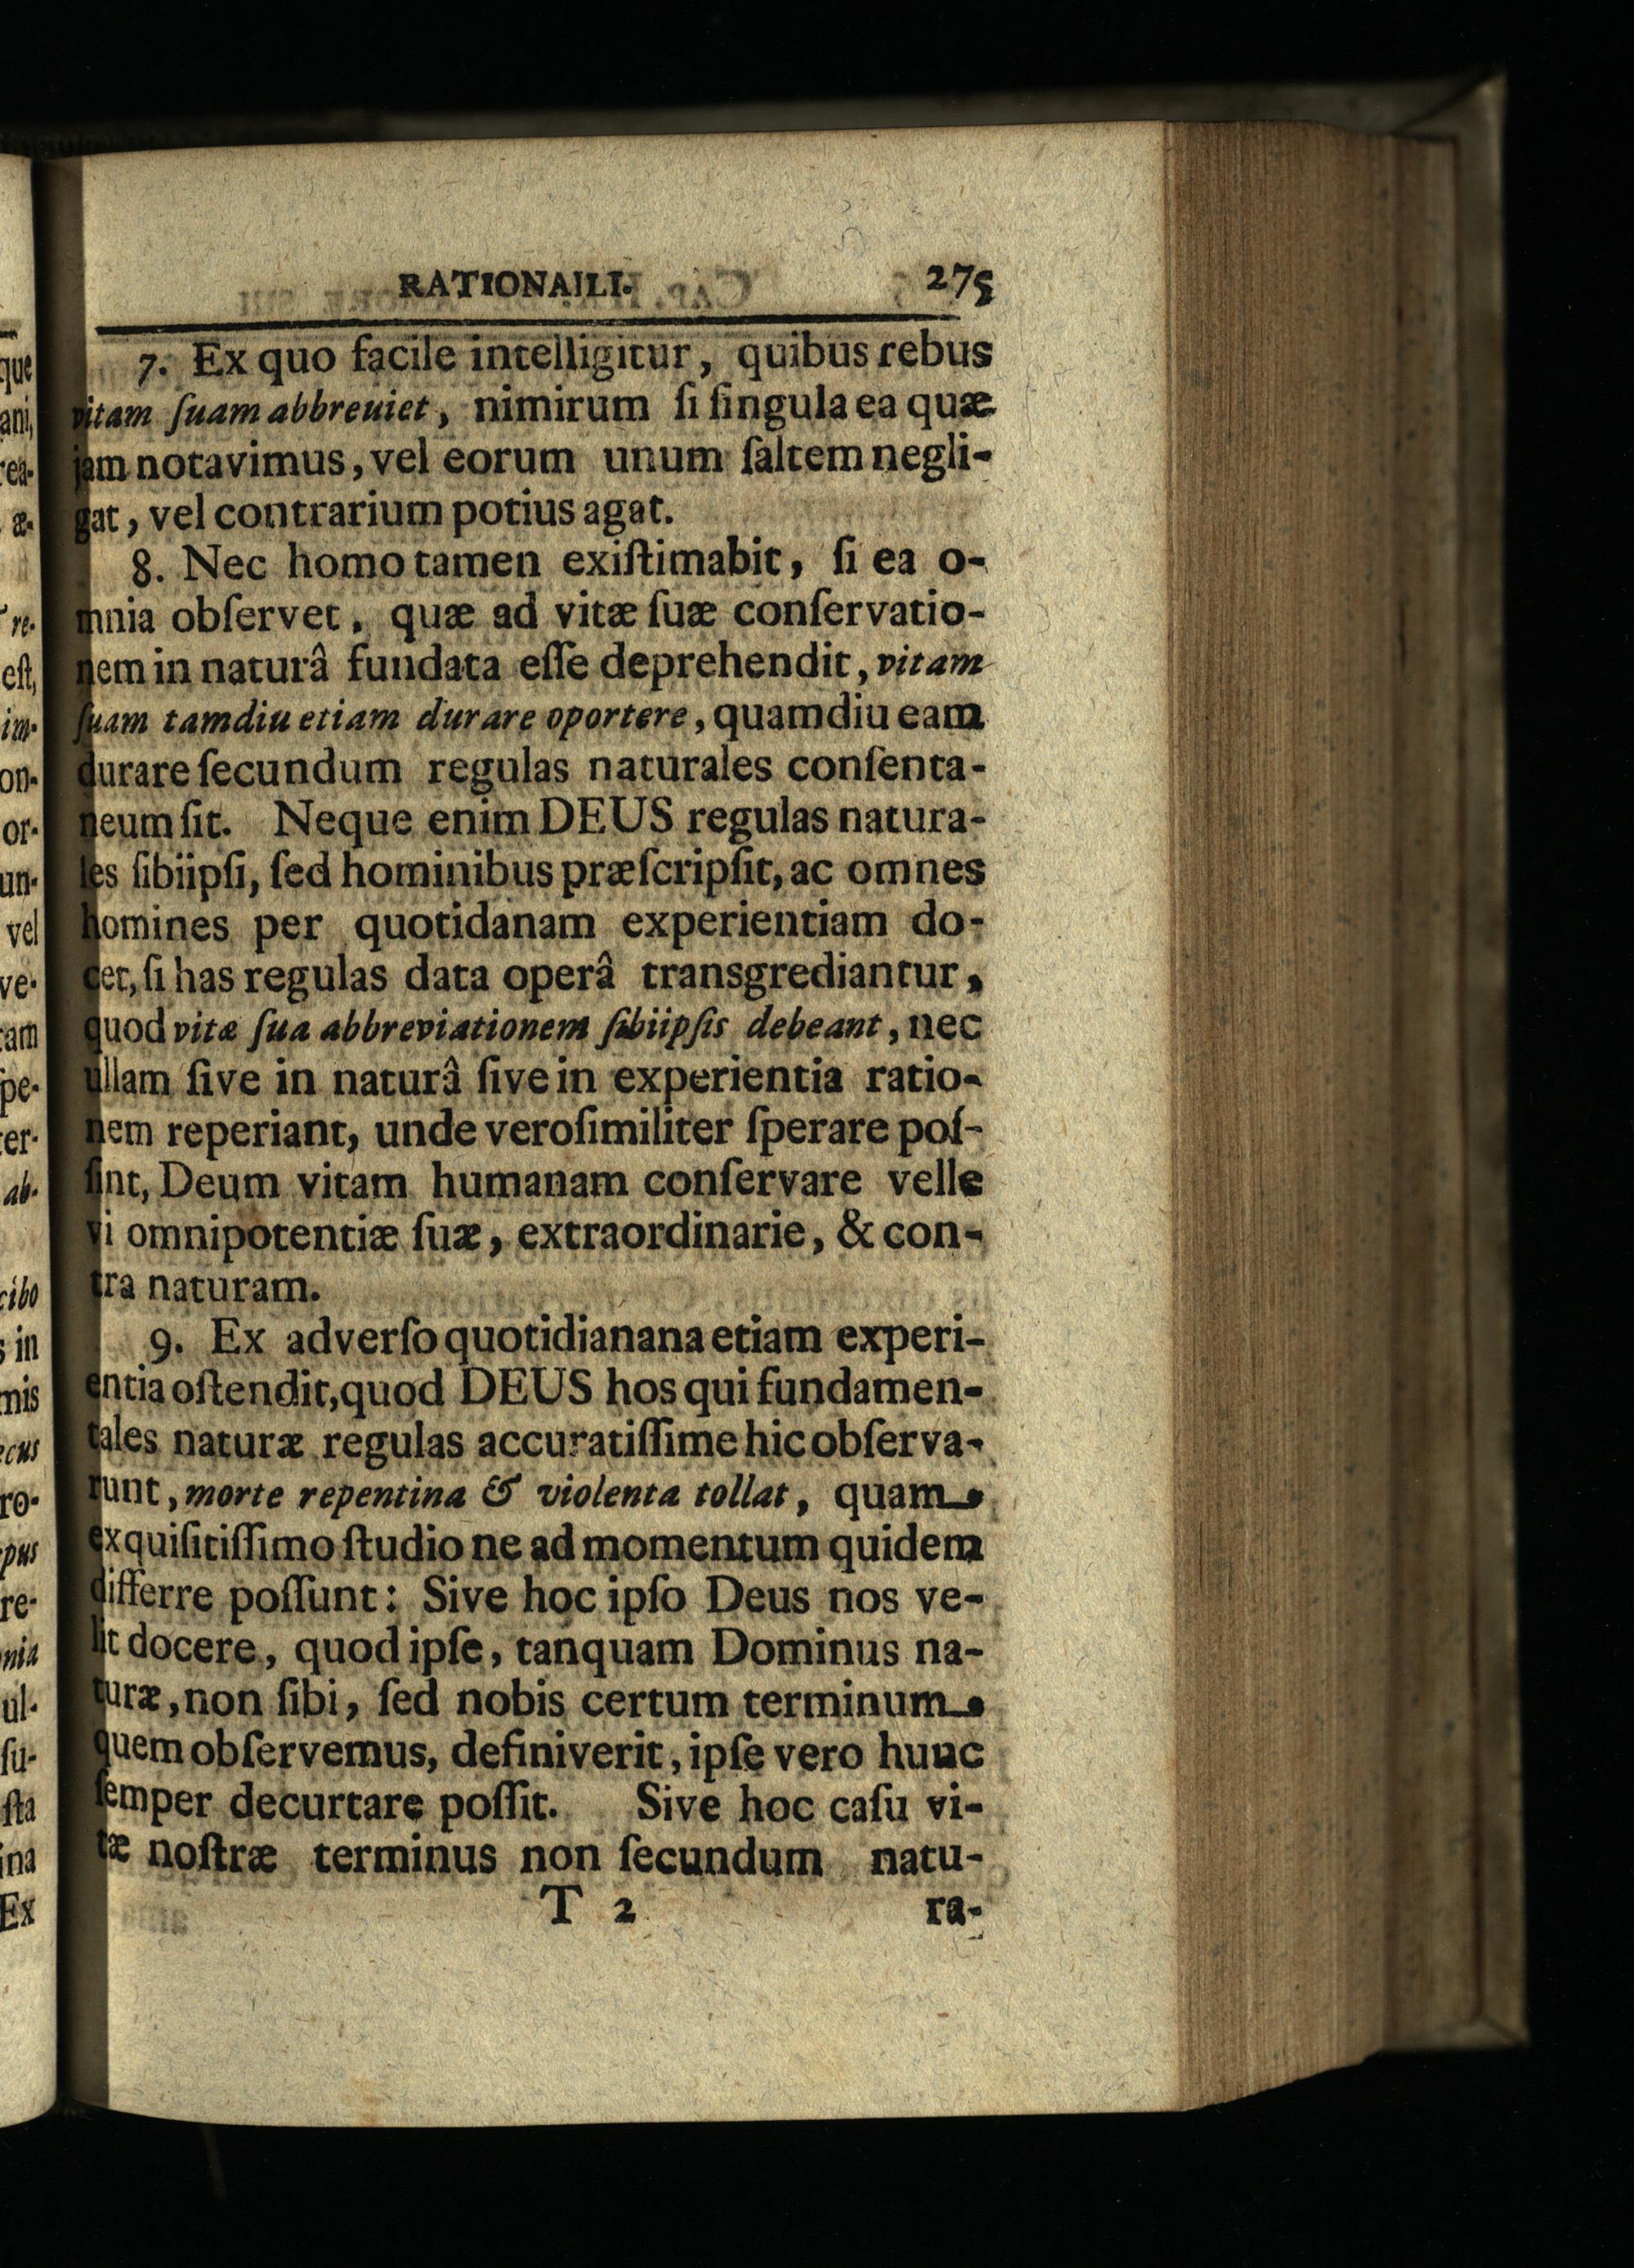 RATIONAILI. 275
7. Ex quo facile intelligitur, quibus rebus
vitam ſuam abbreuiet, nimirum ſi ſingula ea quæ
jam notavimus, vel eorum unum ſaltem negli-
gat, vel contrarium potius agat.
8. Nec homo tamen exiſtimabit, ſi ea o-
mnia obſervet, quæ ad vitæ ſuæ conſervatio-
nem in naturâ fundata eſſe deprehendit, vitam
ſuam tamdiu etiam durare oportere, quamdiu eam
durare ſecundum regulas naturales conſenta-
neum ſit. Neque enim DEUS regulas natura-
les ſibiipſi, ſed hominibus præſcripſit, ac omnes
homines per quotidanam experientiam do-
cet, ſi has regulas data operâ transgrediantur,
quod vitæ ſua abbreviationem ſibiipſis debeant, nec
ullam ſive in naturâ ſive in experientia ratio-
nem reperiant, unde veroſimiliter ſperare poſ-
ſint, Deum vitam humanam conſervare velle
vi omnipotentiæ ſuæ, extraordinarie, & con-
tra naturam.
9. Ex adverſo quotidianana etiam experi-
entia oſtendit, quod DEUS hos qui fundamen-
tales naturæ regulas accuratiſſime hic obſerva-
runt, morte repentina & violenta tollat, quam
exquiſitiſſimo ſtudio ne ad momentum quidem
differre poſſunt: Sive hoc ipſo Deus nos ve-
lit docere, quod ipſe, tanquam Dominus na-
turæ, non ſibi, ſed nobis certum terminum
quem obſervemus, definiverit, ipſe vero hunc
ſemper decurtare poſſit. Sive hoc caſu vi-
tæ noſtræ terminus non ſecundum natu-
T 2 ra-